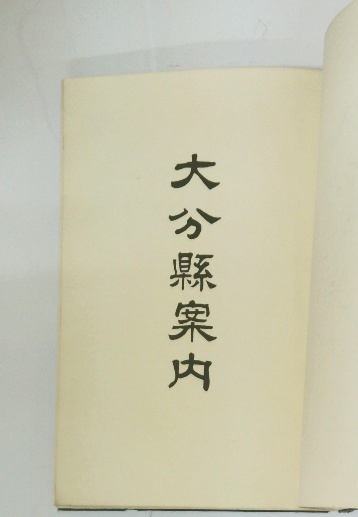 大分縣案内